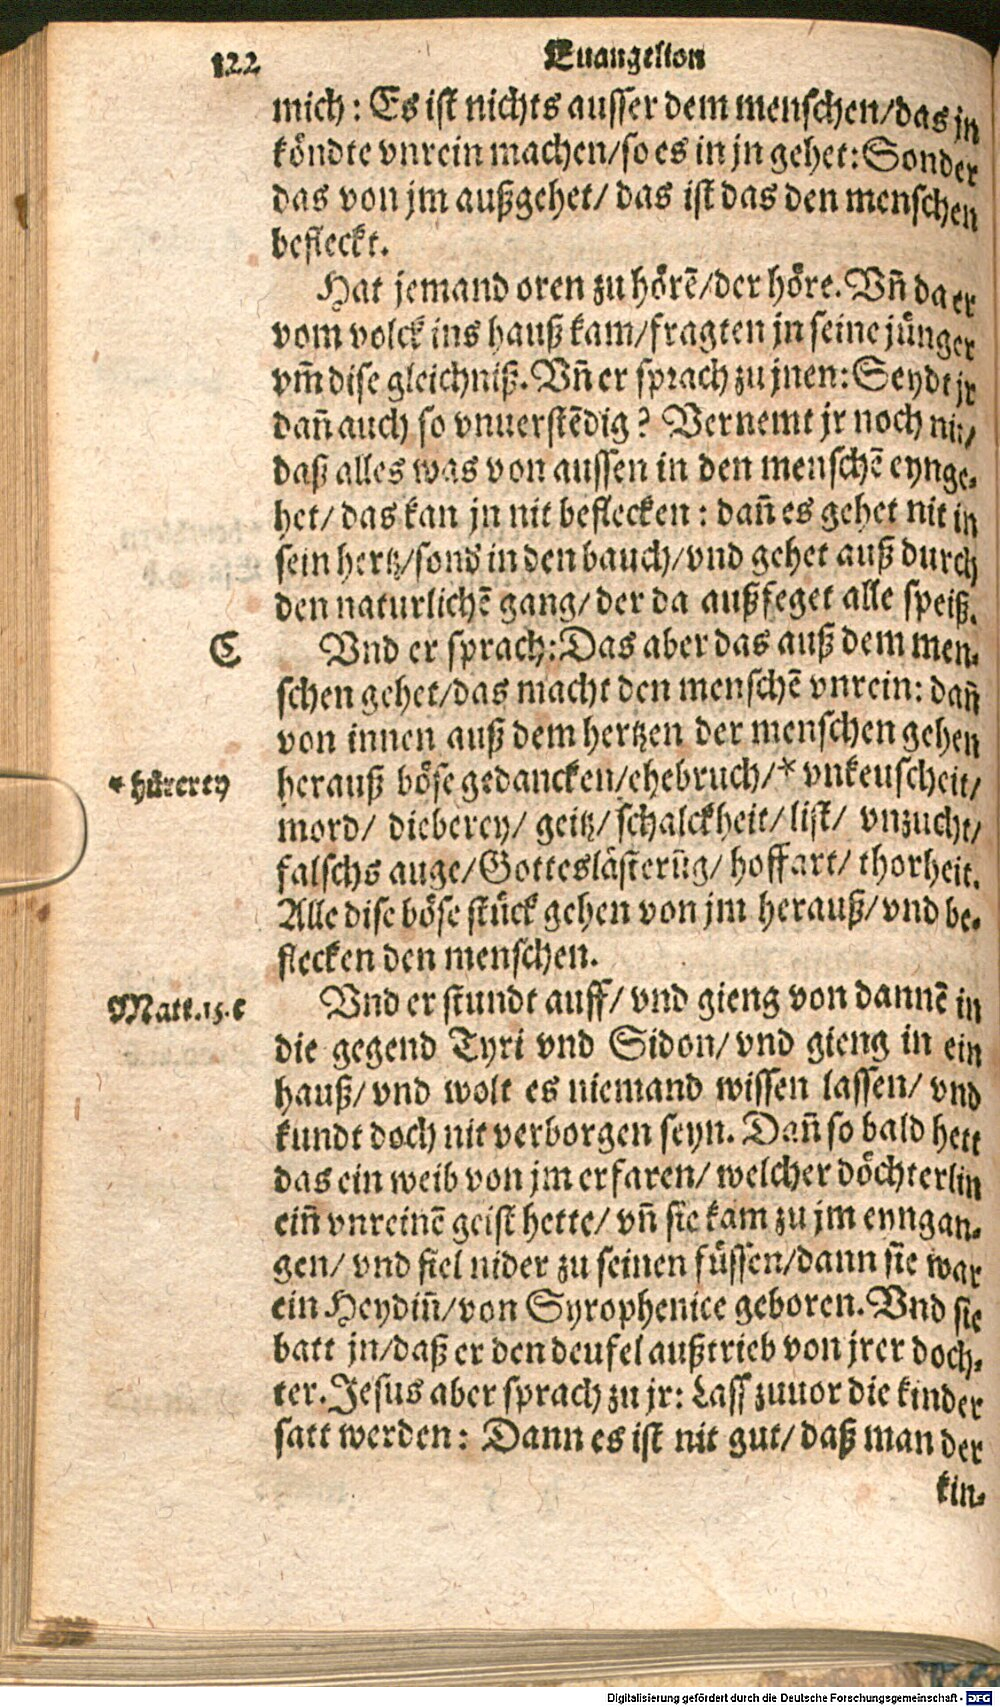 122 Euangelion
mich: Es ist nichts ausser dem menschen/das jn
köndte vnrein machen/so es in jn gehet: Sonder
das von jm außgehet/ das ist das den menschen
befleckt.
Hat jemand oren zu hörẽ/der höre. Vñ da er
vom volck ins hauß kam/fragten jn seine jünger
vm̃ dise gleichniß. Vñ er sprach zu jnen: Seydt jr
dañ auch so vnuerstẽdig? Vernemt jr noch nit/
daß alles was von aussen in den menschẽ eynge-
het/ das kan jn nit beflecken: dañ es gehet nit in
sein hertz/sond in den bauch/vnd gehet auß durch
den naturlichẽ gang/ der da außfeget alle speiß.
C Vnd er sprach: Das aber das auß dem men-
schen gehet/das macht den menschẽ vnrein: dañ
von innen auß dem hertzen der menschen gehen
* hürerey
herauß böse gedancken/ehebruch/* vnkeuscheit/
mord/ dieberey/ geitz/ schalckheit/ list/ vnzucht/
falschs auge/Gotteslästerũg/ hoffart/ thorheit.
Alle dise böse stück gehen von jm herauß/ vnd be-
flecken den menschen.
Matt.15.c
Vnd er stundt auff/ vnd gieng von dannẽ in
die gegend Tyri vnd Sidon/ vnd gieng in ein
hauß/ vnd wolt es niemand wissen lassen/ vnd
kundt doch nit verborgen seyn. Dañ so bald hett
das ein weib von jm erfaren/ welcher döchterlin
eiñ vnreinẽ geist hette/ vñ sie kam zu jm eyngan-
gen/ vnd fiel nider zu seinen füssen/dann sie war
ein Heydiñ/von Syrophenice geboren. Vnd sie
batt jn/daß er den deufel außtrieb von jrer doch-
ter. Jesus aber sprach zu jr: Lass zuuor die kinder
satt werden: Dann es ist nit gut/ daß man der
kin-
Digitalisierung gefördert durch die Deutsche Forschungsgemeinschaft - DFG